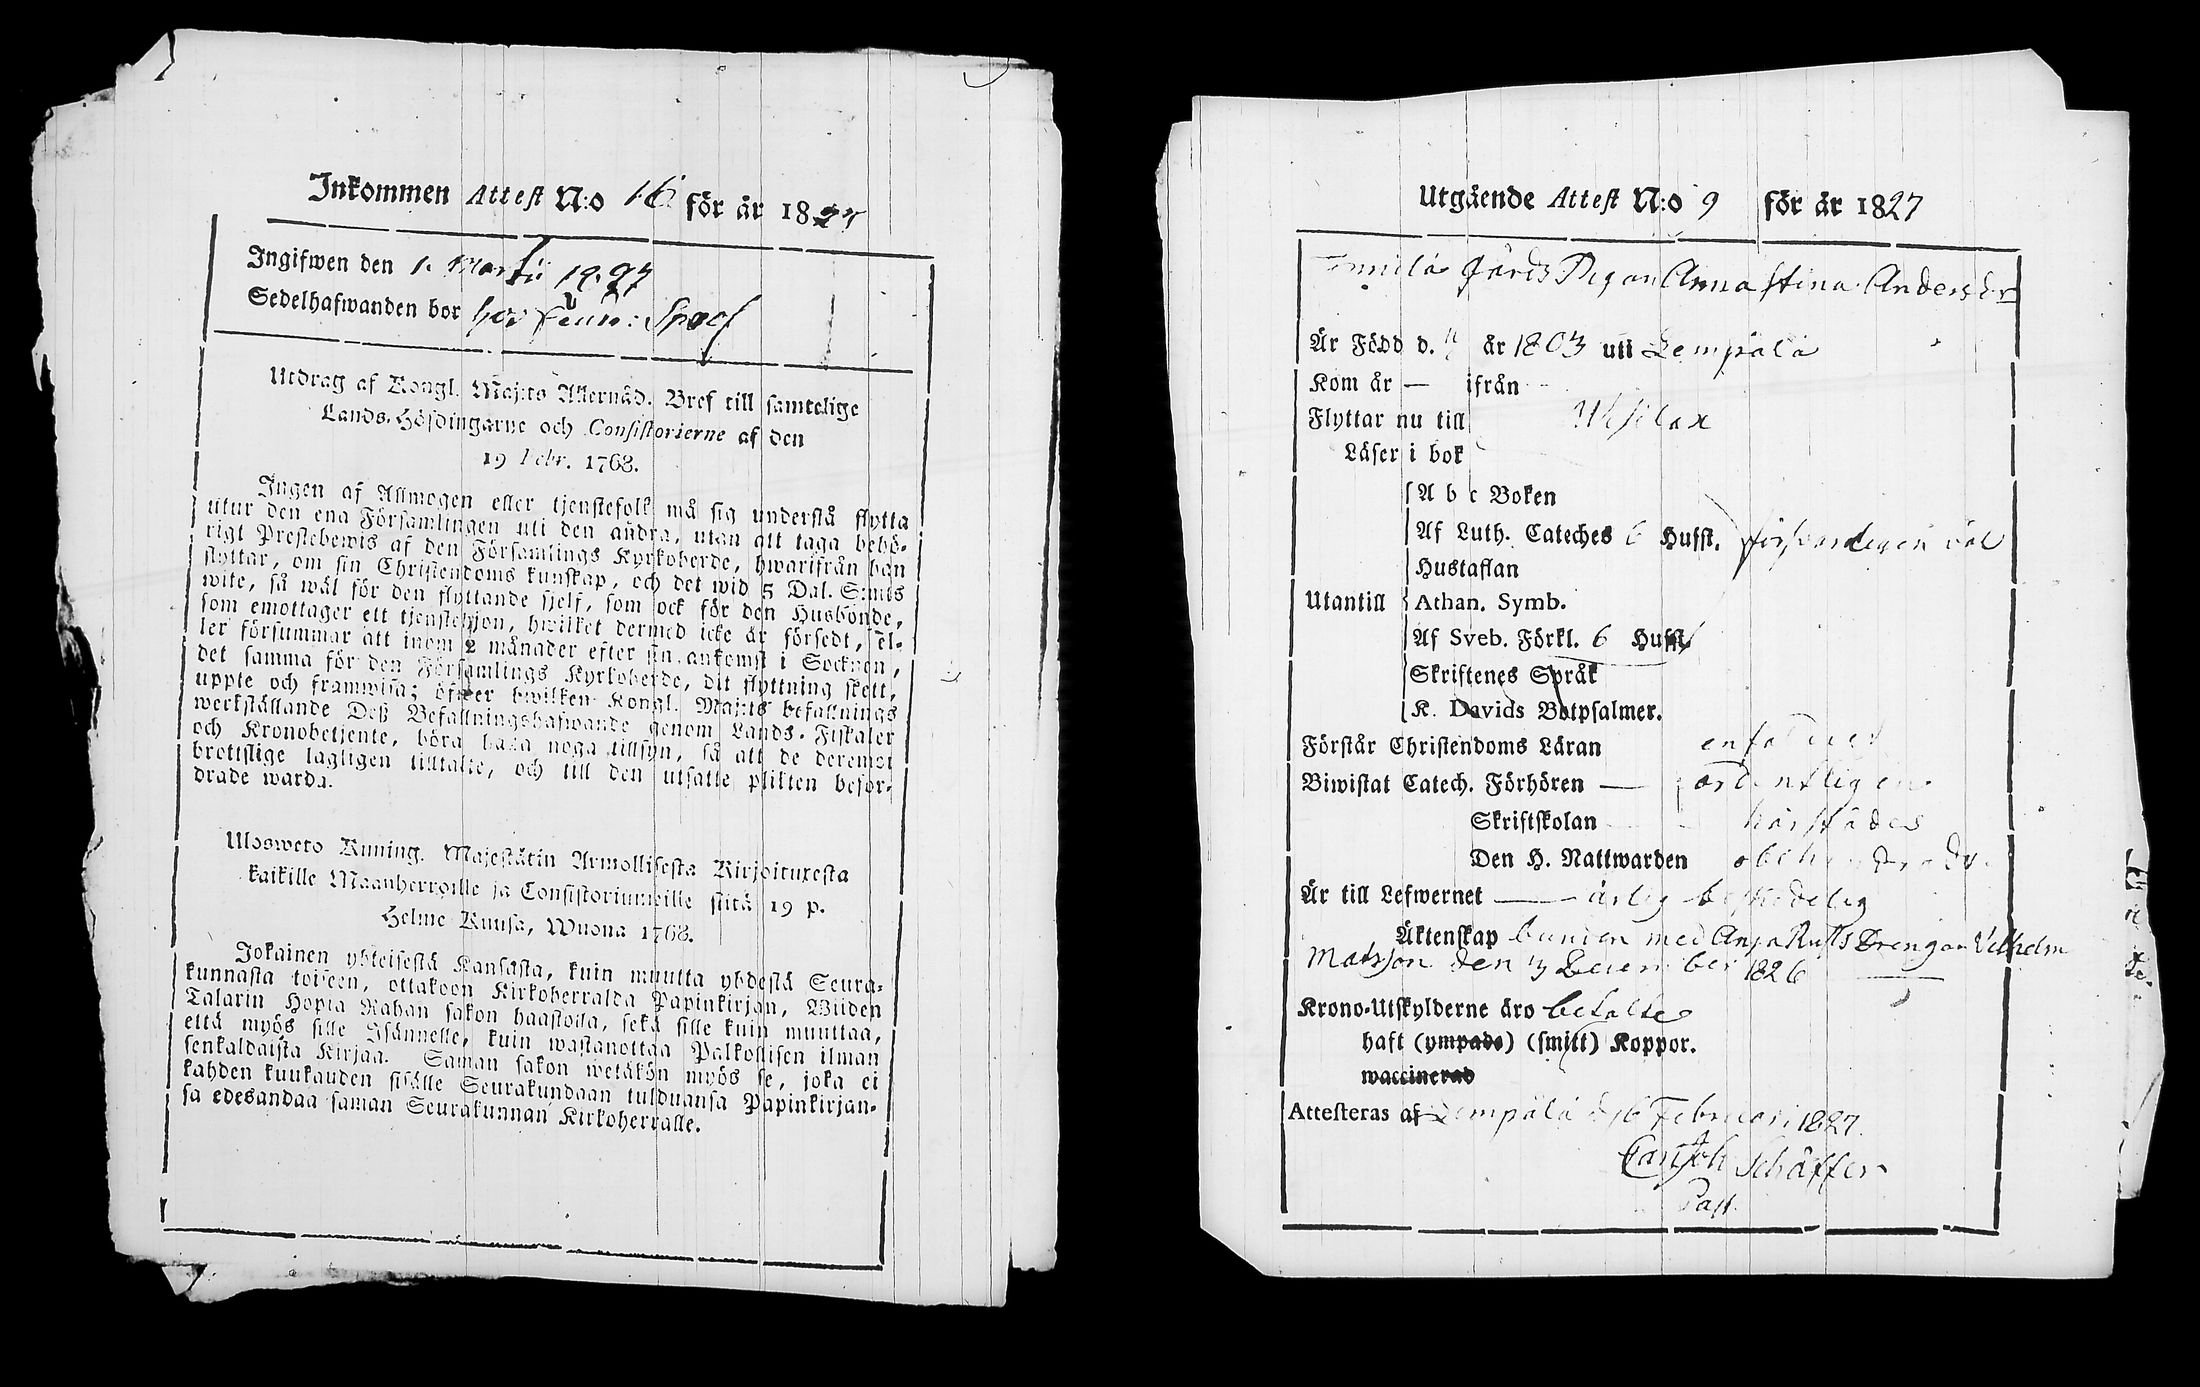 Inkommen Attest N:o 16 för år 1827
Ingifwen den 1. Martii 1827
Sedelhafwanden bor hos
Utdrag af Kongl. Maj:ts Allernåd. Bref till samtelige
Lands-Höfdingarne och Consistorierne af den
19 Febr. 1768.
Ingen af Allmogen eller tjenstefolk må sig understå flytta
utur den ena Församlingen uti den andra, utan att taga behö-
rigt Prestebewis af den Församlings Kyrkoherde, hwarifrån han
flyttar, om sin Christendoms kunskap, och det wid 5 Dal. S:mts
wite, så wäl för den flyttande sjelf, som ock för den Husbonde,
som emottager ett tjenstehjon, hwilket dermed icke är försedt, el-
ler försummar att inom 2 månader efter sin ankomst i Socknen,
det samma för den Församlings Kyrkoherde, dit flyttning skett,
uppte och framwisa; öfwer hwilken Kongl. Maj:ts befallnings
werkställande Deß Befallningshafwande genom Lands-Fiskaler
och Kronobetjente, böra hafa noga tillsyn, så att de deremot
brottslige lagligen tilltalte, och till den utsatte plikten befor-
drade warda.
Ulosweto Kuning. Majestätin Armollisesta Kirjoituxesta
kaikille Maanherroille ja Consistoriumeille siitä 19 p.
Helme Kuusa, Wuona 1768.
Jokainen yhteisestä Kansasta, kuin muutta yhdestä Seura-
kunnasta toiseen, ottakoon Kirkoherralda Papinkirjan, Wiiden
Talarin Hopia Rahan sakon haastolla, sekä sille kuin muuttaa,
että myös sille Isännelle, kuin wastanottaa Palkollisen ilman
senkaldaista Kirjaa. Saman sakon wetäkön myös se, joka ei
kahden kuukauden sisälle Seurakundaan tulduansa Papinkirjan-
sa edesandaa saman Seurakunnan Kirkoherralle.
Utgående Attest N:o 9 för år 1827
Gårds Pigan Anna Stina Andersdr
Är Född d. 4 år 1803 uti Lempälä
Kom år — ifrån
Flyttar nu till
Läser i bok
A b c Boken
Af Luth. Cateches 6 Hufst. försvarligen väl
Hustaflan
Utantill Athan. Symb.
Af Sveb. Förkl. 6 Hufst.
Skriftenes Språk
K. Davids Botpsalmer.
Förstår Christendoms Läran enfaldigt
Biwistat Catech. Förhören — ordentligen
Skriftskolan härstädes
Den H. Nattwarden obehindrad
Är till Lefwernet — ärlig beskedelig
Äktenskap bunden med Drengen Vilhelm
Matsson den 3 December 1826
Krono-Utskylderne äro betalte
haft (ympade) (smitt) Koppor.
waccinerad
Attesteras af Lempälä d 16 Februari 1827.
Carl Joh Schäffer
Past.